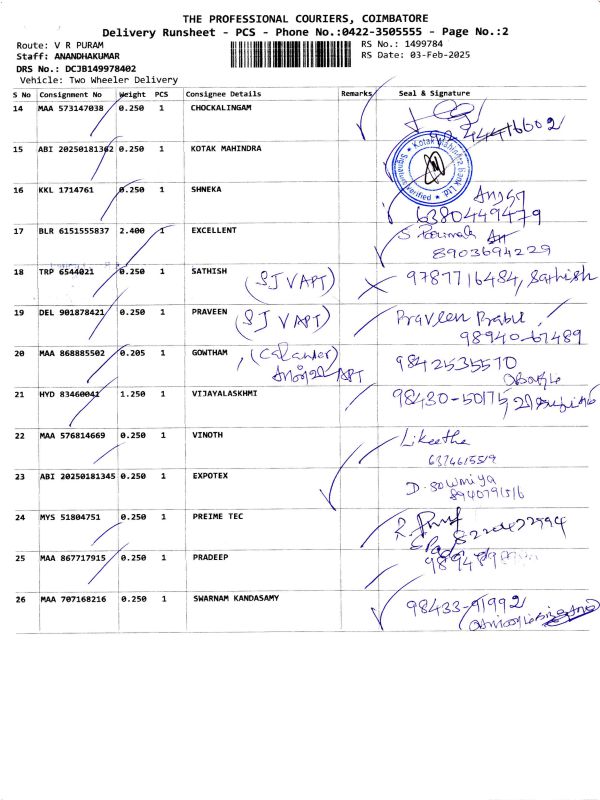 THE PROFESSIONAL COURIERS, COIMBATORE
Delivery Runsheet - PCS - Phone No.:0422-3505555 - Page No.:2
Route: V R PURAM RS No.: 1499784
Staff: ANANDHAKUMAR RS Date: 03-Feb-2025
DRS No.: DCJB149978402
Vehicle: Two Wheeler Delivery
S No Consignment No Weight PCS Consignee Details Remarks Seal & Signature
14 MAA 573147038 0.250 1 CHOCKALINGAM
15 ABI 20250181362 0.250 1 KOTAK MAHINDRA Kotak Mahindra Bank Ltd. Signature Verified
16 KKL 1714761 0.250 1 SHNEKA
6380449479
17 BLR 6151555837 2.400 1 EXCELLENT
8903694229
18 TRP 6544021 0.250 1 SATHISH (SJV APT) 9787716484, Sathish
19 DEL 901878421 0.250 1 PRAVEEN (SJV APT) Praveen Prabu
98940-67489
20 MAA 868885502 0.205 1 GOWTHAM 9842535570
APT
21 HYD 83460041 1.250 1 VIJAYALASKHMI 98430-50175
22 MAA 576814669 0.250 1 VINOTH Likeetha
6374615519
23 ABI 20250181345 0.250 1 EXPOTEX D. Sowmiya
24 MYS 51804751 0.250 1 PREIME TEC
25 MAA 867717915 0.250 1 PRADEEP
26 MAA 707168216 0.250 1 SWARNAM KANDASAMY 98433-91992